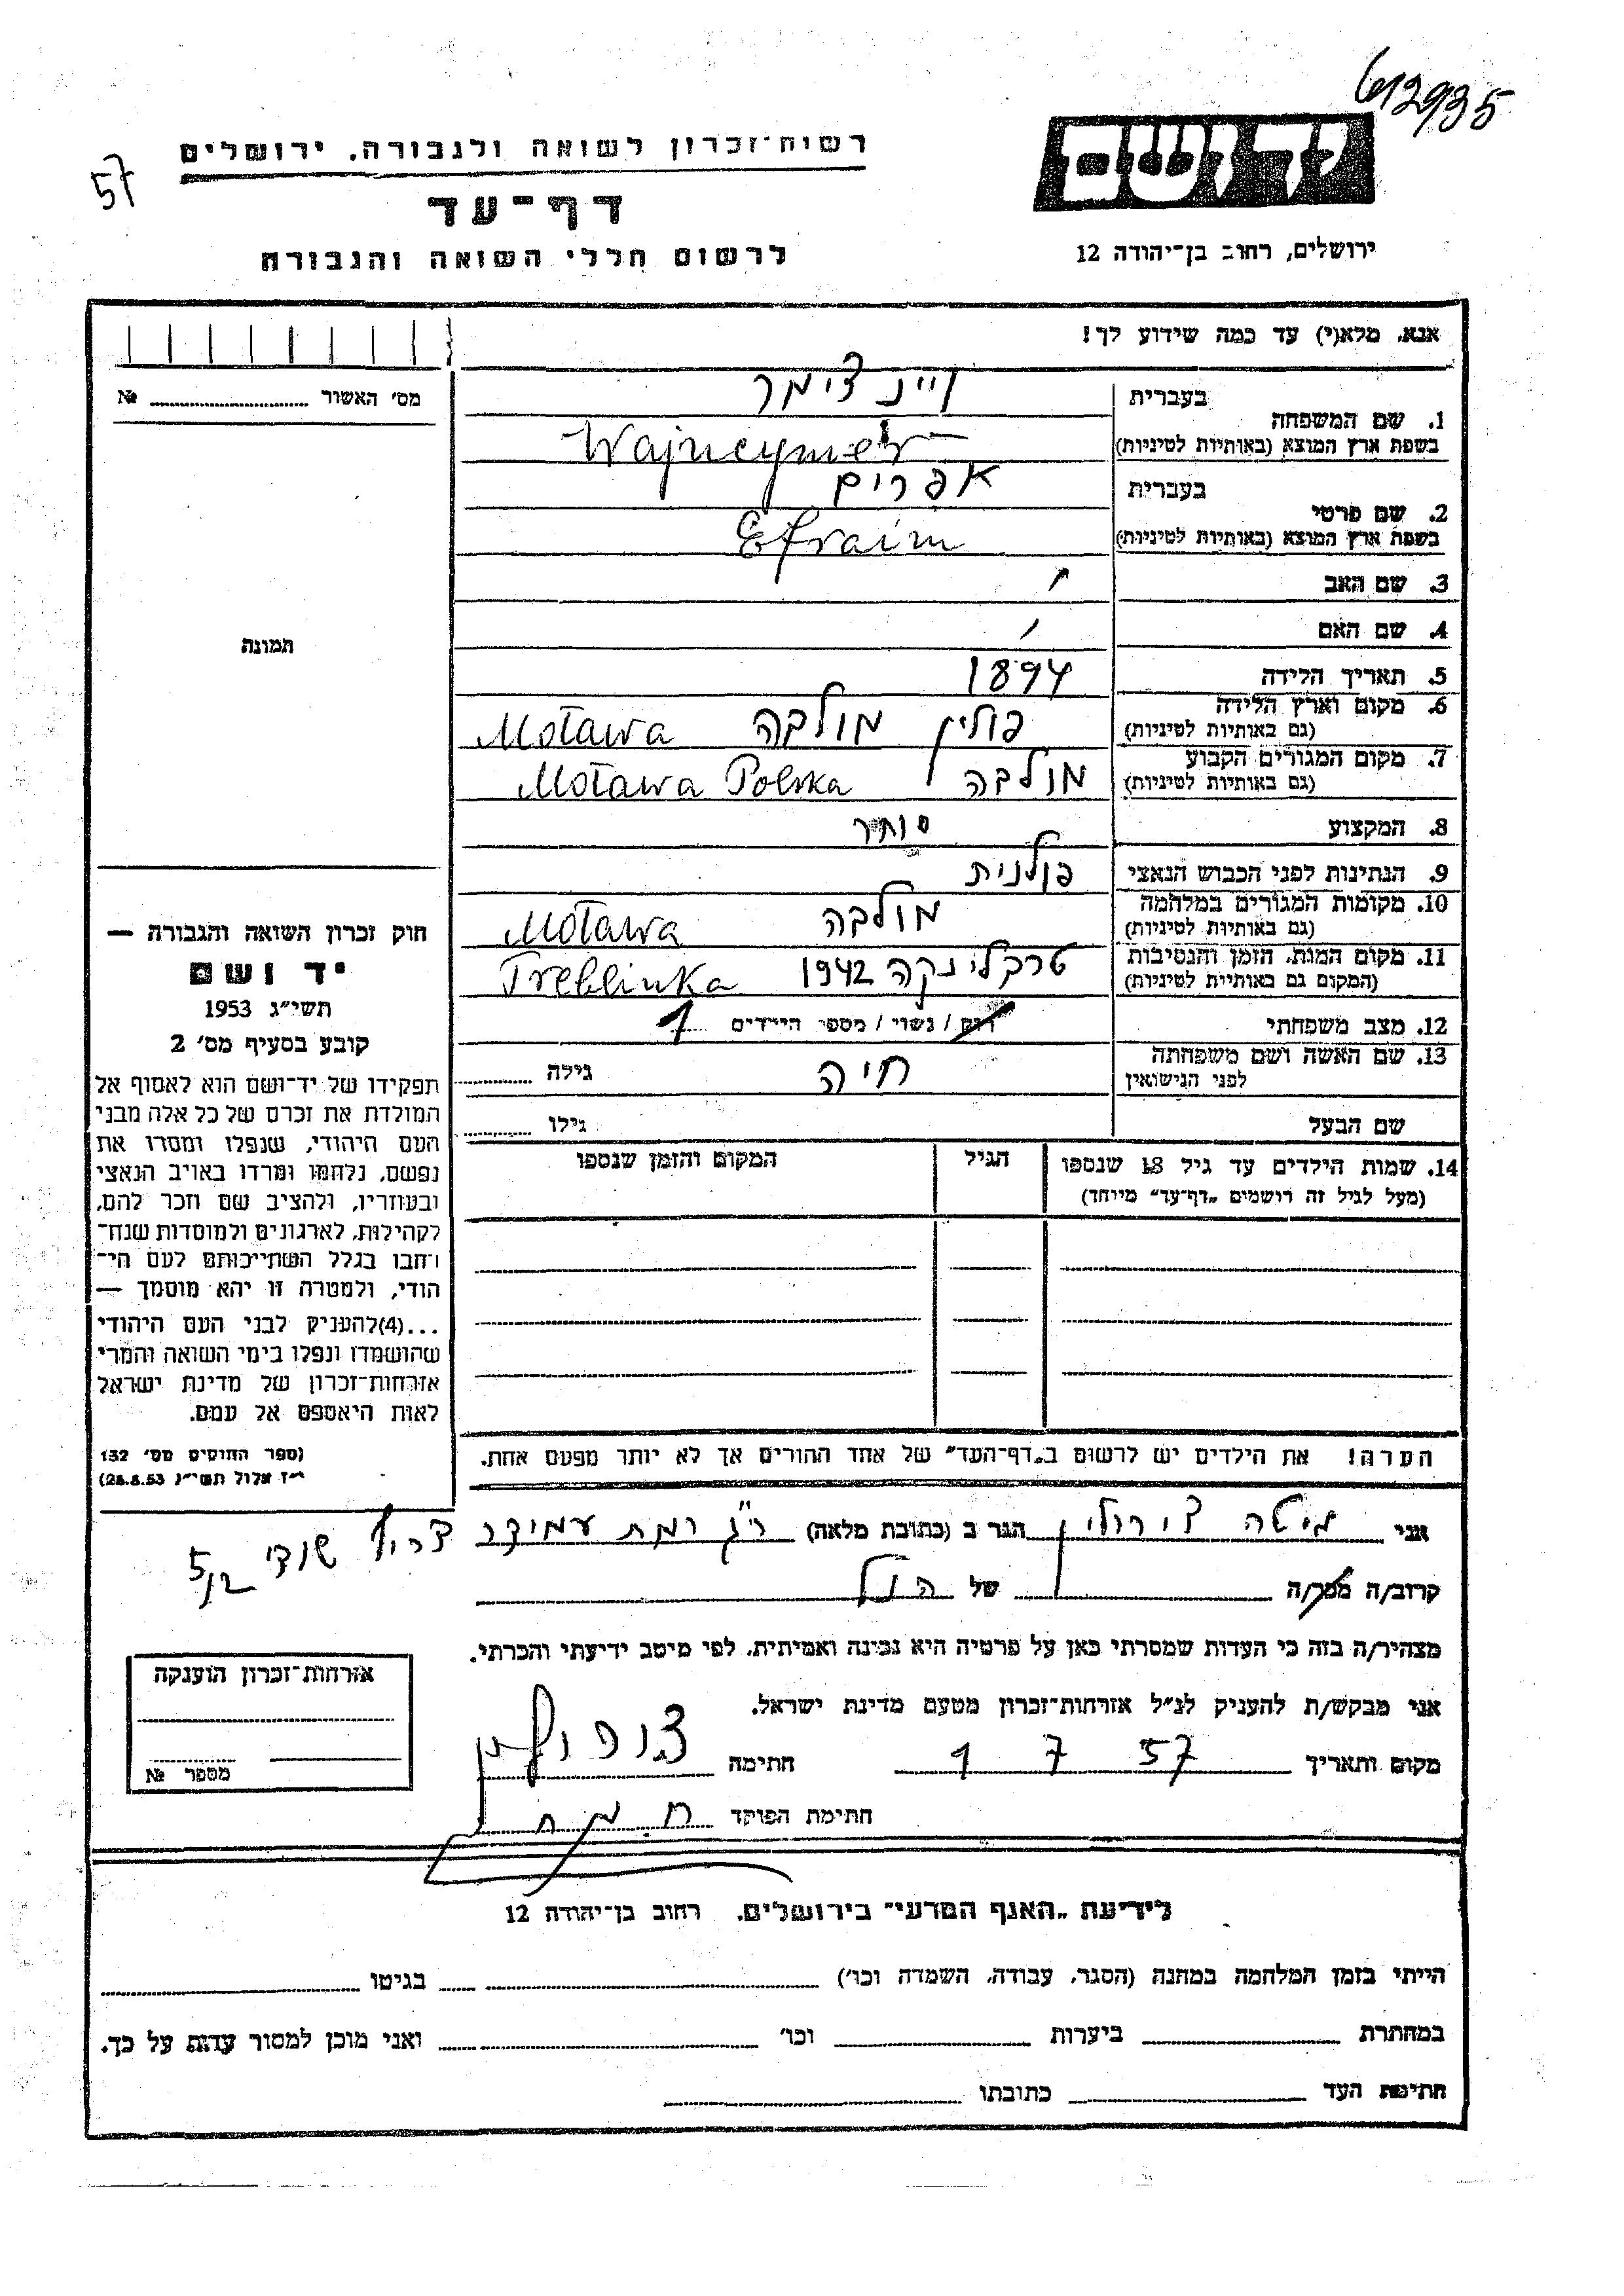 612935
57
רשות־זכרון לשואה ולגבורה, ירושלים
דף־עד
לרשום חללי השואה והגבורה
יד ושם
ירושלים, רחוב בן־יהודה 12
אנא, מלא(י) עד כמה שידוע לך!
מס׳ האשור № 
תמונה
1. שם המשפחה
בעברית ויינצימר
בשפת ארץ המוצא (באותיות לטיניות) Wajncymer
2. שם פרטי
בעברית אפרים
בשפת ארץ המוצא (באותיות לטיניות) Efraim
3. שם האב
4. שם האם
5. תאריך הלידה 1894
6. מקום וארץ הלידה (גם באותיות לטיניות) פולין מולבה Moława
7. מקום המגורים הקבוע (גם באותיות לטיניות) מולבה Moława Polska
8. המקצוע סוחר
9. הנתינות לפני הכבוש הנאצי פולנית
10. מקומות המגורים במלחמה (גם באותיות לטיניות) מולבה Moława
11. מקום המות, הזמן והנסיבות (המקום גם באותיות לטיניות) טרבלינקה 1942 Treblinka
12. מצב משפחתי רווק / נשוי / מספר הילדים 1
13. שם האשה ושם משפחתה לפני הנישואין חיה גילה
שם הבעל גילו
14. שמות הילדים עד גיל 18 שנספו (מעל לגיל זה רושמים „דף־עד״ מיוחד) הגיל המקום והזמן שנספו
חוק זכרון השואה והגבורה —
יד ושם
תשי״ג 1953
קובע בסעיף מס׳ 2
תפקידו של יד־ושם הוא לאסוף אל
המולדת את זכרם של כל אלה מבני
העם היהודי, שנפלו ומסרו את
נפשם, נלחמו ומרדו באויב הנאצי
ובעוזריו, ולהציב שם וזכר להם,
לקהילות, לארגונים ולמוסדות שנח־
רבו בגלל השתייכותם לעם הי־
הודי, ולמטרה זו יהא מוסמך —
...(4)להעניק לבני העם היהודי
שהושמדו ונפלו בימי השואה והמרי
אזרחות־זכרון של מדינת ישראל
לאות היאספם אל עמם.
(ספר החוקים מס׳ 132
י״ז אלול תשי״ג 28.8.53)
הערה! את הילדים יש לרשום ב„דף־העד״ של אחד ההורים אך לא יותר מפעם אחת.
אני הגר ב (כתובת מלאה) ר״ג רמת עמידר צריף שודי 5/2
קרוב/ה מכר/ה של הנ״ל
מצהיר/ה בזה כי העדות שמסרתי כאן על פרטיה היא נכונה ואמיתית, לפי מיטב ידיעתי והכרתי.
אני מבקש/ת להעניק לנ״ל אזרחות־זכרון מטעם מדינת ישראל.
מקום ותאריך 1 7 57 חתימה
חתימת הפוקד
אזרחות־זכרון הוענקה
מספר №
לידיעת „האגף המדעי״ בירושלים, רחוב בן־יהודה 12
הייתי בזמן המלחמה במחנה (הסגר, עבודה, השמדה וכו׳) בגיטו
במחתרת ביערות וכו׳ ואני מוכן למסור עדות על כך.
חתימת העד כתובתו